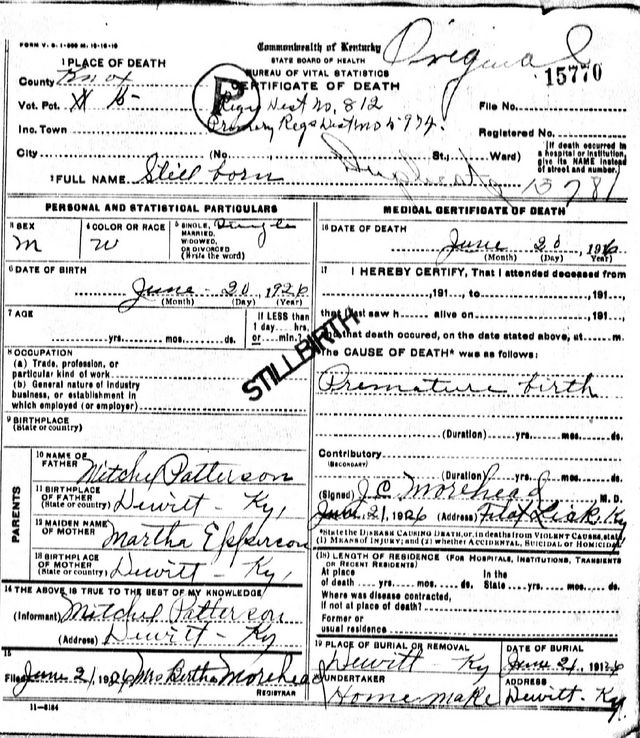 FORM V. S. 1-500 M. 10-16-19
Original
Commonwealth of Kentucky
STATE BOARD OF HEALTH
BUREAU OF VITAL STATISTICS
CERTIFICATE OF DEATH
15770
1 PLACE OF DEATH
County Knox
Vot. Pct. # 5
Regis Dist No. 812
File No.
Inc. Town
Primary Regs Dist No 5974.
Registered No.
City (No. St., Ward)
[If death occurred in a hospital or institution, give its NAME instead of street and number.]
Duplicate 13781
2 FULL NAME Still born
PERSONAL AND STATISTICAL PARTICULARS
3 SEX M
4 COLOR OR RACE W
5 SINGLE, MARRIED, WIDOWED, OR DIVORCED (Write the word) Single
6 DATE OF BIRTH
June - 20, 1926
(Month) (Day) (Year)
7 AGE
yrs. mos. ds.
If LESS than 1 day hrs. or min.?
8 OCCUPATION
(a) Trade, profession, or particular kind of work
(b) General nature of industry business, or establishment in which employed (or employer)
9 BIRTHPLACE
(State or country)
PARENTS
10 NAME OF FATHER Mitchel Patterson
11 BIRTHPLACE OF FATHER (State or country) Dewitt - Ky,
12 MAIDEN NAME OF MOTHER Martha Epperson
13 BIRTHPLACE OF MOTHER (State or country) Dewitt - Ky,
14 THE ABOVE IS TRUE TO THE BEST OF MY KNOWLEDGE
(Informant) Mitchel Patterson
(Address) Dewitt - Ky
15
Filed June 21, 1926 Mrs Bertha Morehead
REGISTRAR
11-8184
STILLBIRTH
MEDICAL CERTIFICATE OF DEATH
16 DATE OF DEATH
June 20 1926
(Month) (Day) Year)
17 I HEREBY CERTIFY, That I attended deceased from
,191 to ,191 ,
that I last saw h alive on ,191 ,
and that death occured, on the date stated above, at m.
The CAUSE OF DEATH* was as follows:
Premature birth
(Duration) yrs. mos. ds.
Contributory
(SECONDARY)
(Duration) yrs. mos. ds.
(Signed) J. C. Morehead M. D.
June 21, 1926 (Address) Flat Lick, Ky
*State the DISEASE CAUSING DEATH, or, in deaths from VIOLENT CAUSES, state (1) MEANS OF INJURY; and (2) whether ACCIDENTAL, SUICIDAL or HOMICIDAL
(18) LENGTH OF RESIDENCE (FOR HOSPITALS, INSTITUTIONS, TRANSIENTS OR RECENT RESIDENTS)
At place of death yrs. mos. ds.
In the State yrs. mos. ds.
Where was disease contracted, if not at place of death?
Former or usual residence
19 PLACE OF BURIAL OR REMOVAL
Dewitt - Ky
DATE OF BURIAL
June 21, 1926
UNDERTAKER
Home make
ADDRESS
Dewitt - Ky.